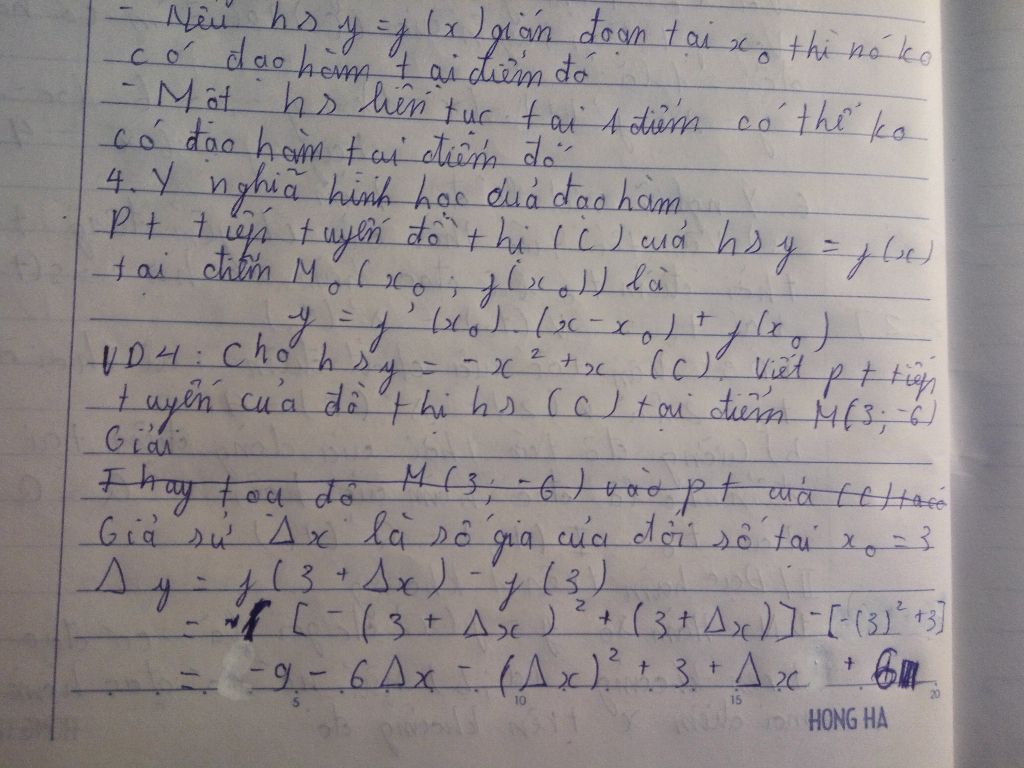 - Nếu hs y = f(x) gián đoạn tại x₀ thì nó ko
có đạo hàm tại điểm đó
- Một hs liên tục tại 1 điểm có thể ko
có đạo hàm tại điểm đó
4. Ý nghĩa hình học của đạo hàm
Pt tiếp tuyến đồ thị (C) của hs y = f(x)
tại điểm M₀(x₀; f(x₀)) là
y = f'(x₀).(x - x₀) + f(x₀)
VD4: Cho hs y = -x² + x (C). Viết pt tiếp
tuyến của đồ thị hs (C) tại điểm M(3; -6)
Giải
Thay toạ độ M(3; -6) vào pt của (C) ta có
Giả sử Δx là số gia của đối số tại x₀ = 3
Δy = f(3 + Δx) - f(3)
= [-(3 + Δx)² + (3 + Δx)] - [-(3)² + 3]
= -9 - 6Δx - (Δx)² + 3 + Δx + 6
5 10 15 20
HONG HA